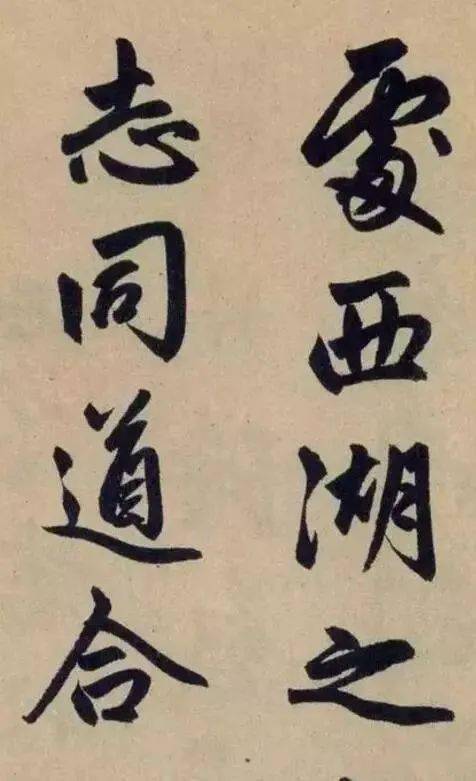 處西湖之
志同道合